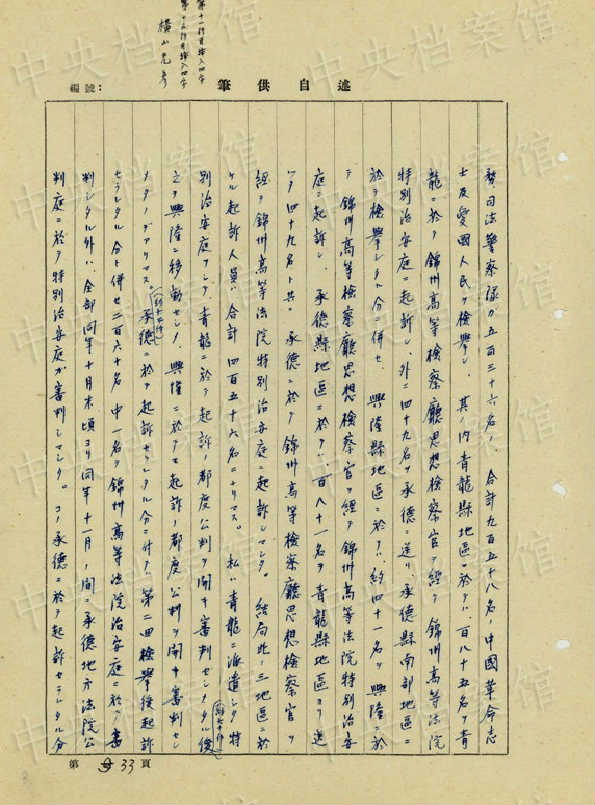 第十一行目挿入四字
第十五行目挿入四字
横山光彦
編號:
筆供自述
務司法警察隊ガ五百三十六名ノ、合計九百五十八名ノ中國革命志
士及愛國人民ヲ檢擧シ 其ノ内青龍縣地區ニ於テハ、百八十五名ヲ青
龍ニ於テ錦州高等檢察廳思想檢察官ヲ經テ錦州高等法院
特別治安庭ニ起訴シ、外ニ四十九名ヲ承德ニ送リ、承德縣南部地區ニ
於テ檢擧シタル分ニ併セ、興隆縣地區ニ於テハ、約四十一名ヲ興隆ニ於
テ錦州高等檢察廳思想檢察官ヲ經テ錦州高等法院特別治安
庭ニ起訴シ、承德縣地區ニ於テハ、百八十一名ヲ青龍縣地區ヨリ送
ツタ四十九名ト共ニ承德ニ於テ錦州高等檢察廳思想檢察官ヲ
經テ錦州高等法院特別治安庭ニ起訴シマシタ。結局此ノ三地區ニ於
ケル起訴人員ハ合計四百五十六名ニナリマス。私ハ青龍ニ派遣シタ特
別治安庭ヲシテ、青龍ニ於テ起訴ノ都度公判ヲ開キ審判セシメタル後
之ヲ興隆ニ移動セシメ、興隆ニ於テモ起訴ノ都度公判ヲ開キ審判セシ
メタノデアリマス。承德ニ於テ起訴セラレタル分ニ付テ、第二回檢擧後起訴
セラレタル分ト併セ二百六十名中一名ヲ錦州高等法院治安庭ニ於テ審
判シタル外ハ、全部同年十月末頃ヨリ同年十一月ノ間ニ承德地方法院公
判庭ニ於テ特別治安庭ガ審判シマシタ。コノ承德ニ於テ起訴セラレタル分
第 33 頁
中央档案馆